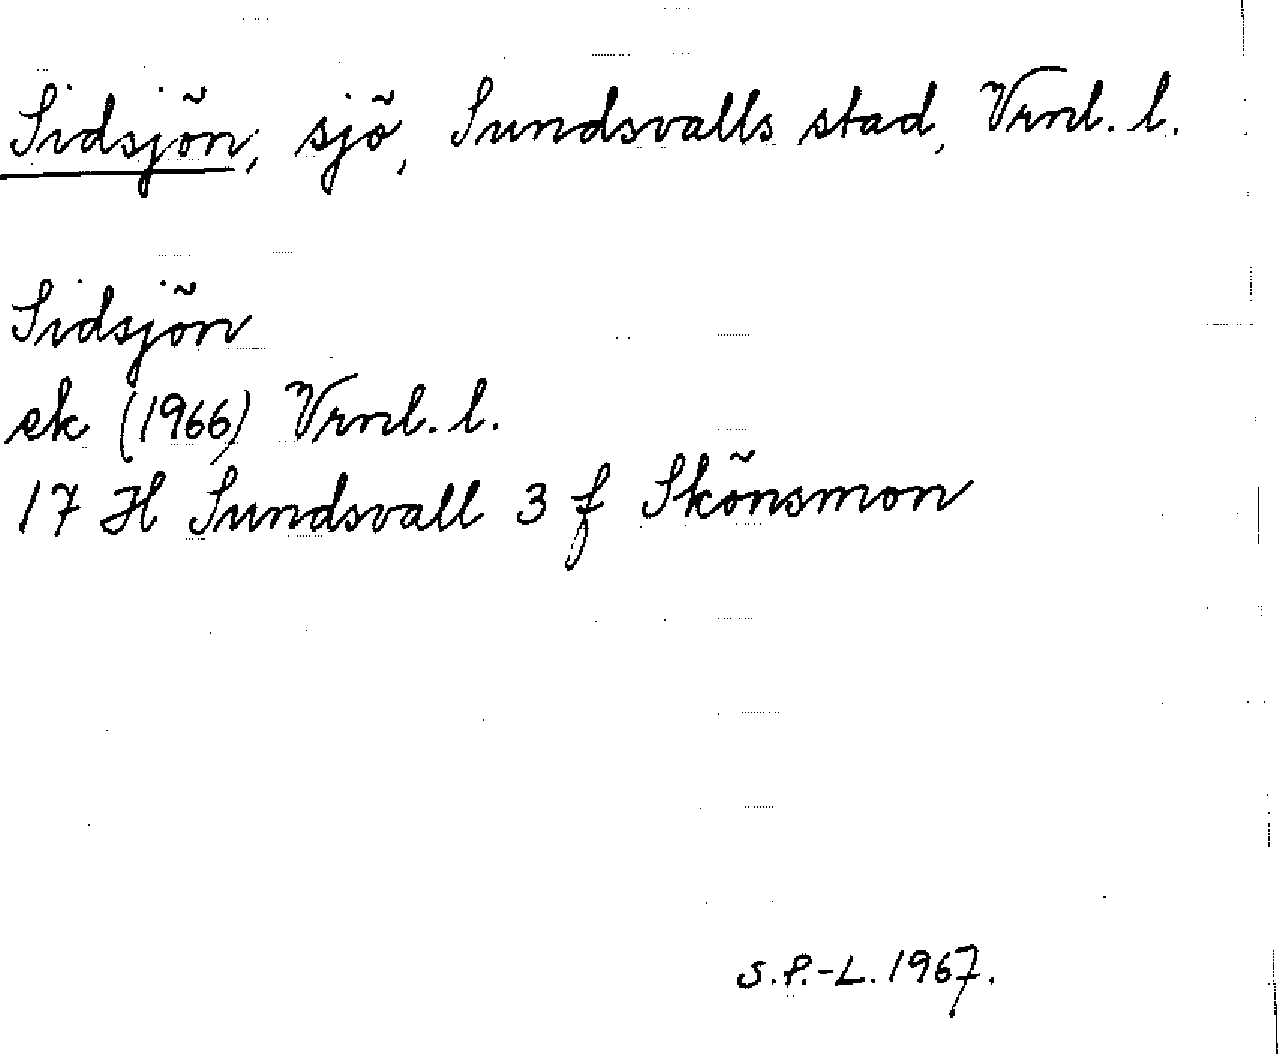 Sidsjön, sjö, Sundsvalls stad, Vrnl. l.
Sidsjön
ek (1966) Vrnl. l.
17 H Sundsvall 3 f Skönsmon
S.P.-L. 1967.